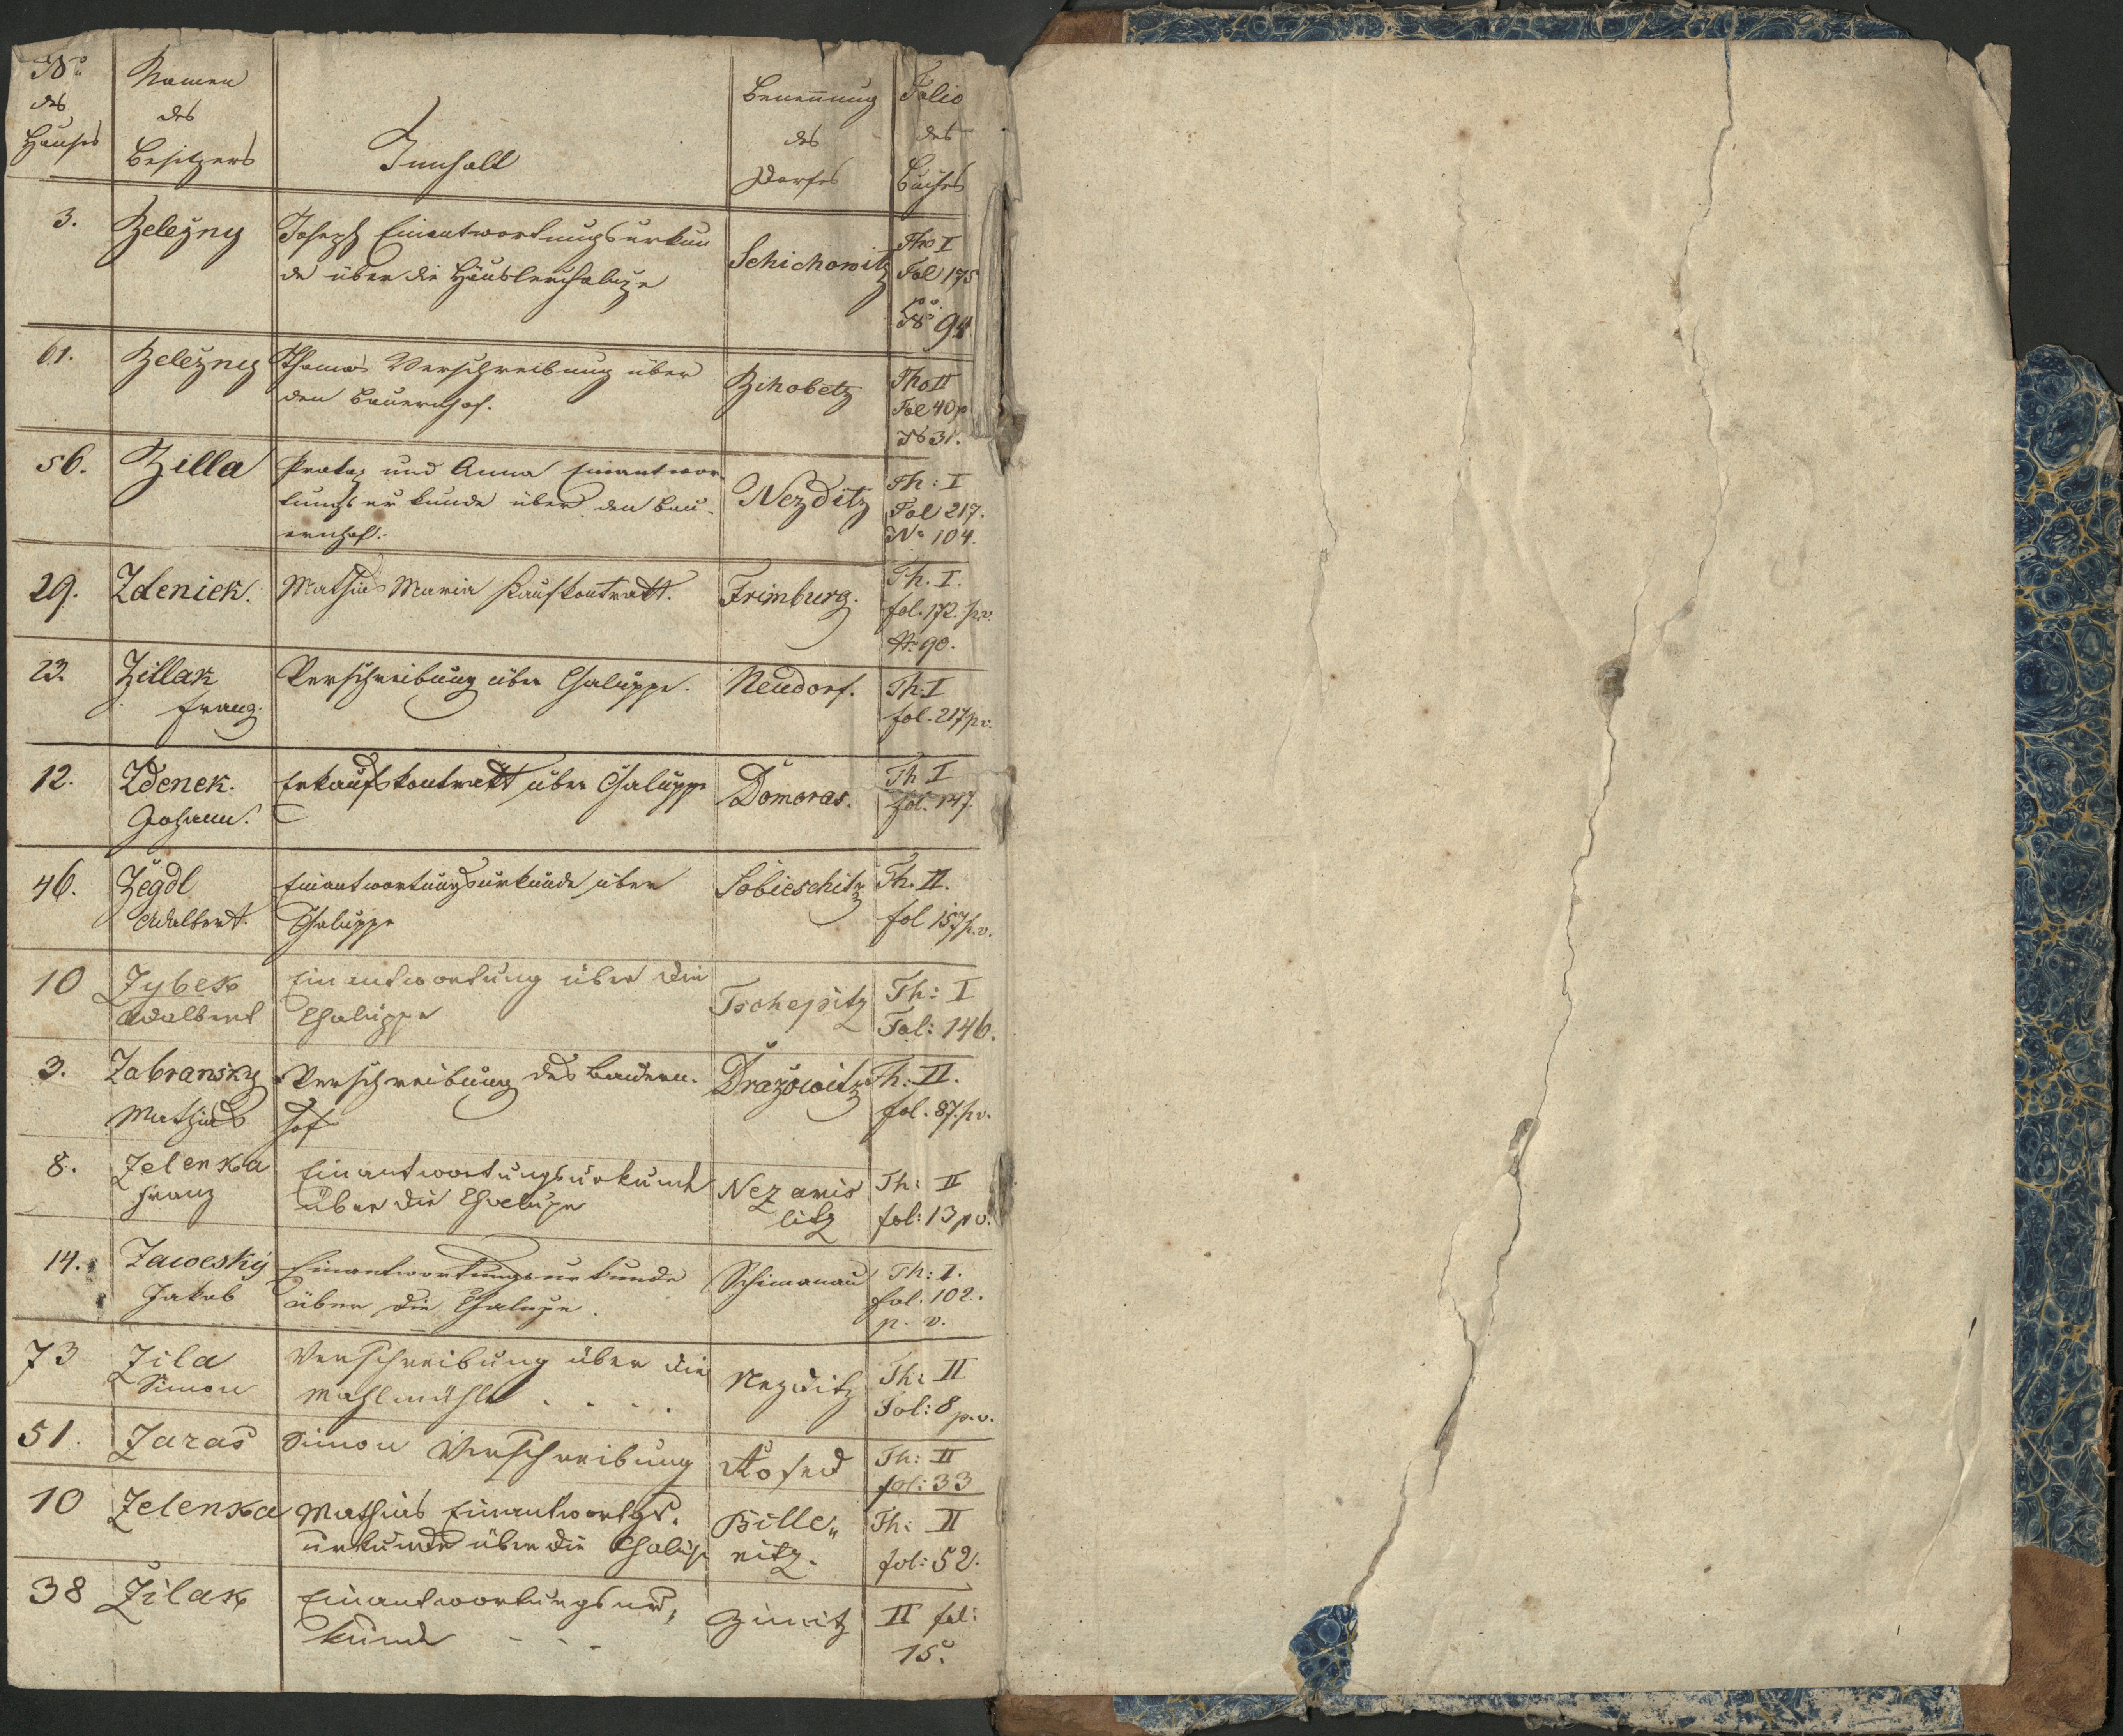 No des Hauses
Namen des Besitzers
Innhalt
Benennung des Dorfes
Folio des Buches
3. Železny Joseph Einantwortungsurkun
de über die Häuslerchaluze
Schichowitz Tho I
Fol 175
No 94
61. Železny Thomas Verschreibung über
den Bauernhof.
Žihobetz Tho II
Fol 40 p
No 31.
56. Zilla und Anna Einantwor
tungsurkunde über den Bau-
ernhof.
Nezditz Th: I
Fol 217.
No 104.
29. Zdeniek. Mathias Maria Kaufkontrakt. Frimburg. Th. I.
fol. 172. p.v.
No 90.
23. Zillak Verschreibung über Chaluppe. Neudorf. Th. I
Franz. fol. 217 p.v.
12. Zdenek. Erkaufskontrakt über Chaluppe Domoras. Th I
Johann. fol. 147.
46. Zegdl Einantwortungsurkunde über Sobieschitz Th. II.
Adalbert. Chaluppe fol 157 p.v.
10 Zybek Einantwortung über die Tschepitz Th: I
Adalbert Chaluppe Fol: 146.
3. Zabransky Verschreibung des Bauern- Dražowitz Th: II.
Mathias hof fol. 87. p.v.
8. Zelenka Einantwortungsurkunde Nezamis Th: II
Franz über die Chalupe litz fol: 13 p v.
14. Zawesky Einantwortungsurkunde Schimanau Th: I.
Jakob über die Chalupe. fol. 102.
p. v.
73 Zila Verschreibung über die Nezditz Th: II
Simon Mahlmühle . . . . Fol: 8 p.v.
51. Zaras Simon Verschreibung Kosed Th: II
fol: 33
10 Zelenka Mathias Einantwortgs. Bille„ Th: II
urkunde über die Chalup nitz. fol: 52.
38 Zilak Einantwortungsur, Zimitz II fol:
kunde - - - 15.